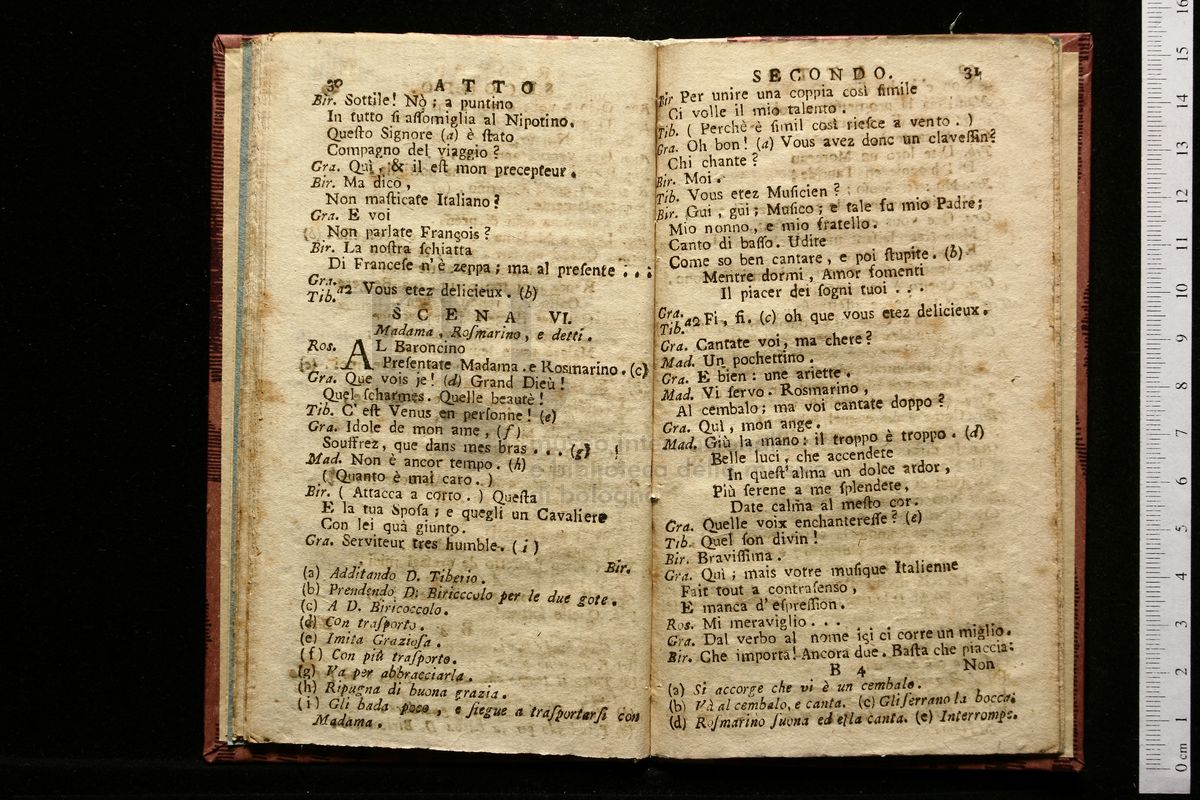 30 ATTO
Bir. Sottile! Nò; a puntino
In tutto ſi aſſomiglia al Nipotino.
Queſto Signore (a) è ſtato
Compagno del viaggio?
Gra. Quì, & il eſt mon precepteur.
Bir. Ma dico,
Non maſticate Italiano?
Gra. E voi
Non parlate François?
Bir. La noſtra ſchiatta
Di Franceſe n'è zeppa; ma al preſente...
Gra.
Tib. a2 Vous etez delicieux. (b)
SCENA VI.
Madama, Roſmarino, e detti.
Ros. AL Baroncino
Preſentate Madama.e Rosmarino. (c)
Gra. Que vois je! (d) Grand Dieù!
Quel ſcharmes. Quelle beautè!
Tib. C'eſt Venus en perſonne! (e)
Gra. Idole de mon ame, (f)
Souffrez, que dans mes bras... (g)
Mad. Non è ancor tempo. (h)
(Quanto è mai caro.)
Bir. (Attacca a corto.) Queſta
E la tua Spoſa; e quegli un Cavaliere
Con lei quà giunto.
Gra. Serviteur tres humble. (i)
Bir.
(a) Additando D. Tiberio.
(b) Prendendo D. Biricccolo per le due gote.
(c) A D. Biricoccolo.
(d) Con traſporto.
(e) Imita Grazioſa.
(f) Con più traſporto.
(g) Va per abbracciarla.
(h) Ripugna di buona grazia.
(i) Gli bada poco, e ſiegue a traſportarſi con
Madama.
SECONDO. 31
Bir Per unire una coppia così ſimile
Ci volle il mio talento.
Tib. (Perchè è ſimil così rieſce a vento.)
Gra. Oh bon! (a) Vous avez donc un claveſſin?
Chi chante?
Bir. Moi.
Tib. Vous etez Muſicien?
Bir. Gui, gui; Muſico; e tale fu mio Padre;
Mio nonno, e mio fratello.
Canto di baſſo. Udite
Come so ben cantare, e poi ſtupite. (b)
Mentre dormi, Amor fomenti
Il piacer dei ſogni tuoi...
Gra.
Tib. a2 Fi, fi. (c) oh que vous etez delicieux.
Gra. Cantate voi, ma chere?
Mad. Un pochettino.
Gra. E bien: une ariette.
Mad. Vi ſervo. Rosmarino,
Al cembalo; ma voi cantate doppo?
Gra. Quì, mon ange.
Mad. Giù la mano: il troppo è troppo. (d)
Belle luci, che accendete
In queſt'alma un dolce ardor,
Più ſerene a me ſplendete,
Date calma al meſto cor.
Gra. Quelle voix enchantereſſe? (e)
Tib. Quel ſon divin!
Bir. Braviſſima.
Gra. Quì; mais votre muſique Italienne
Fait tout a contraſenso,
E manca d'eſpreſſion.
Ros. Mi meraviglio...
Gra. Dal verbo al nome iqi ci corre un miglio.
Bir. Che importa! Ancora due. Baſta che piaccia:
B 4 Non
(a) Si accorge che vi è un cembalo.
(b) Và al cembalo, e canta. (c) Gli ſerrano la bocca.
(d) Roſmarino ſuona ed eſſa canta. (e) Interrompe.